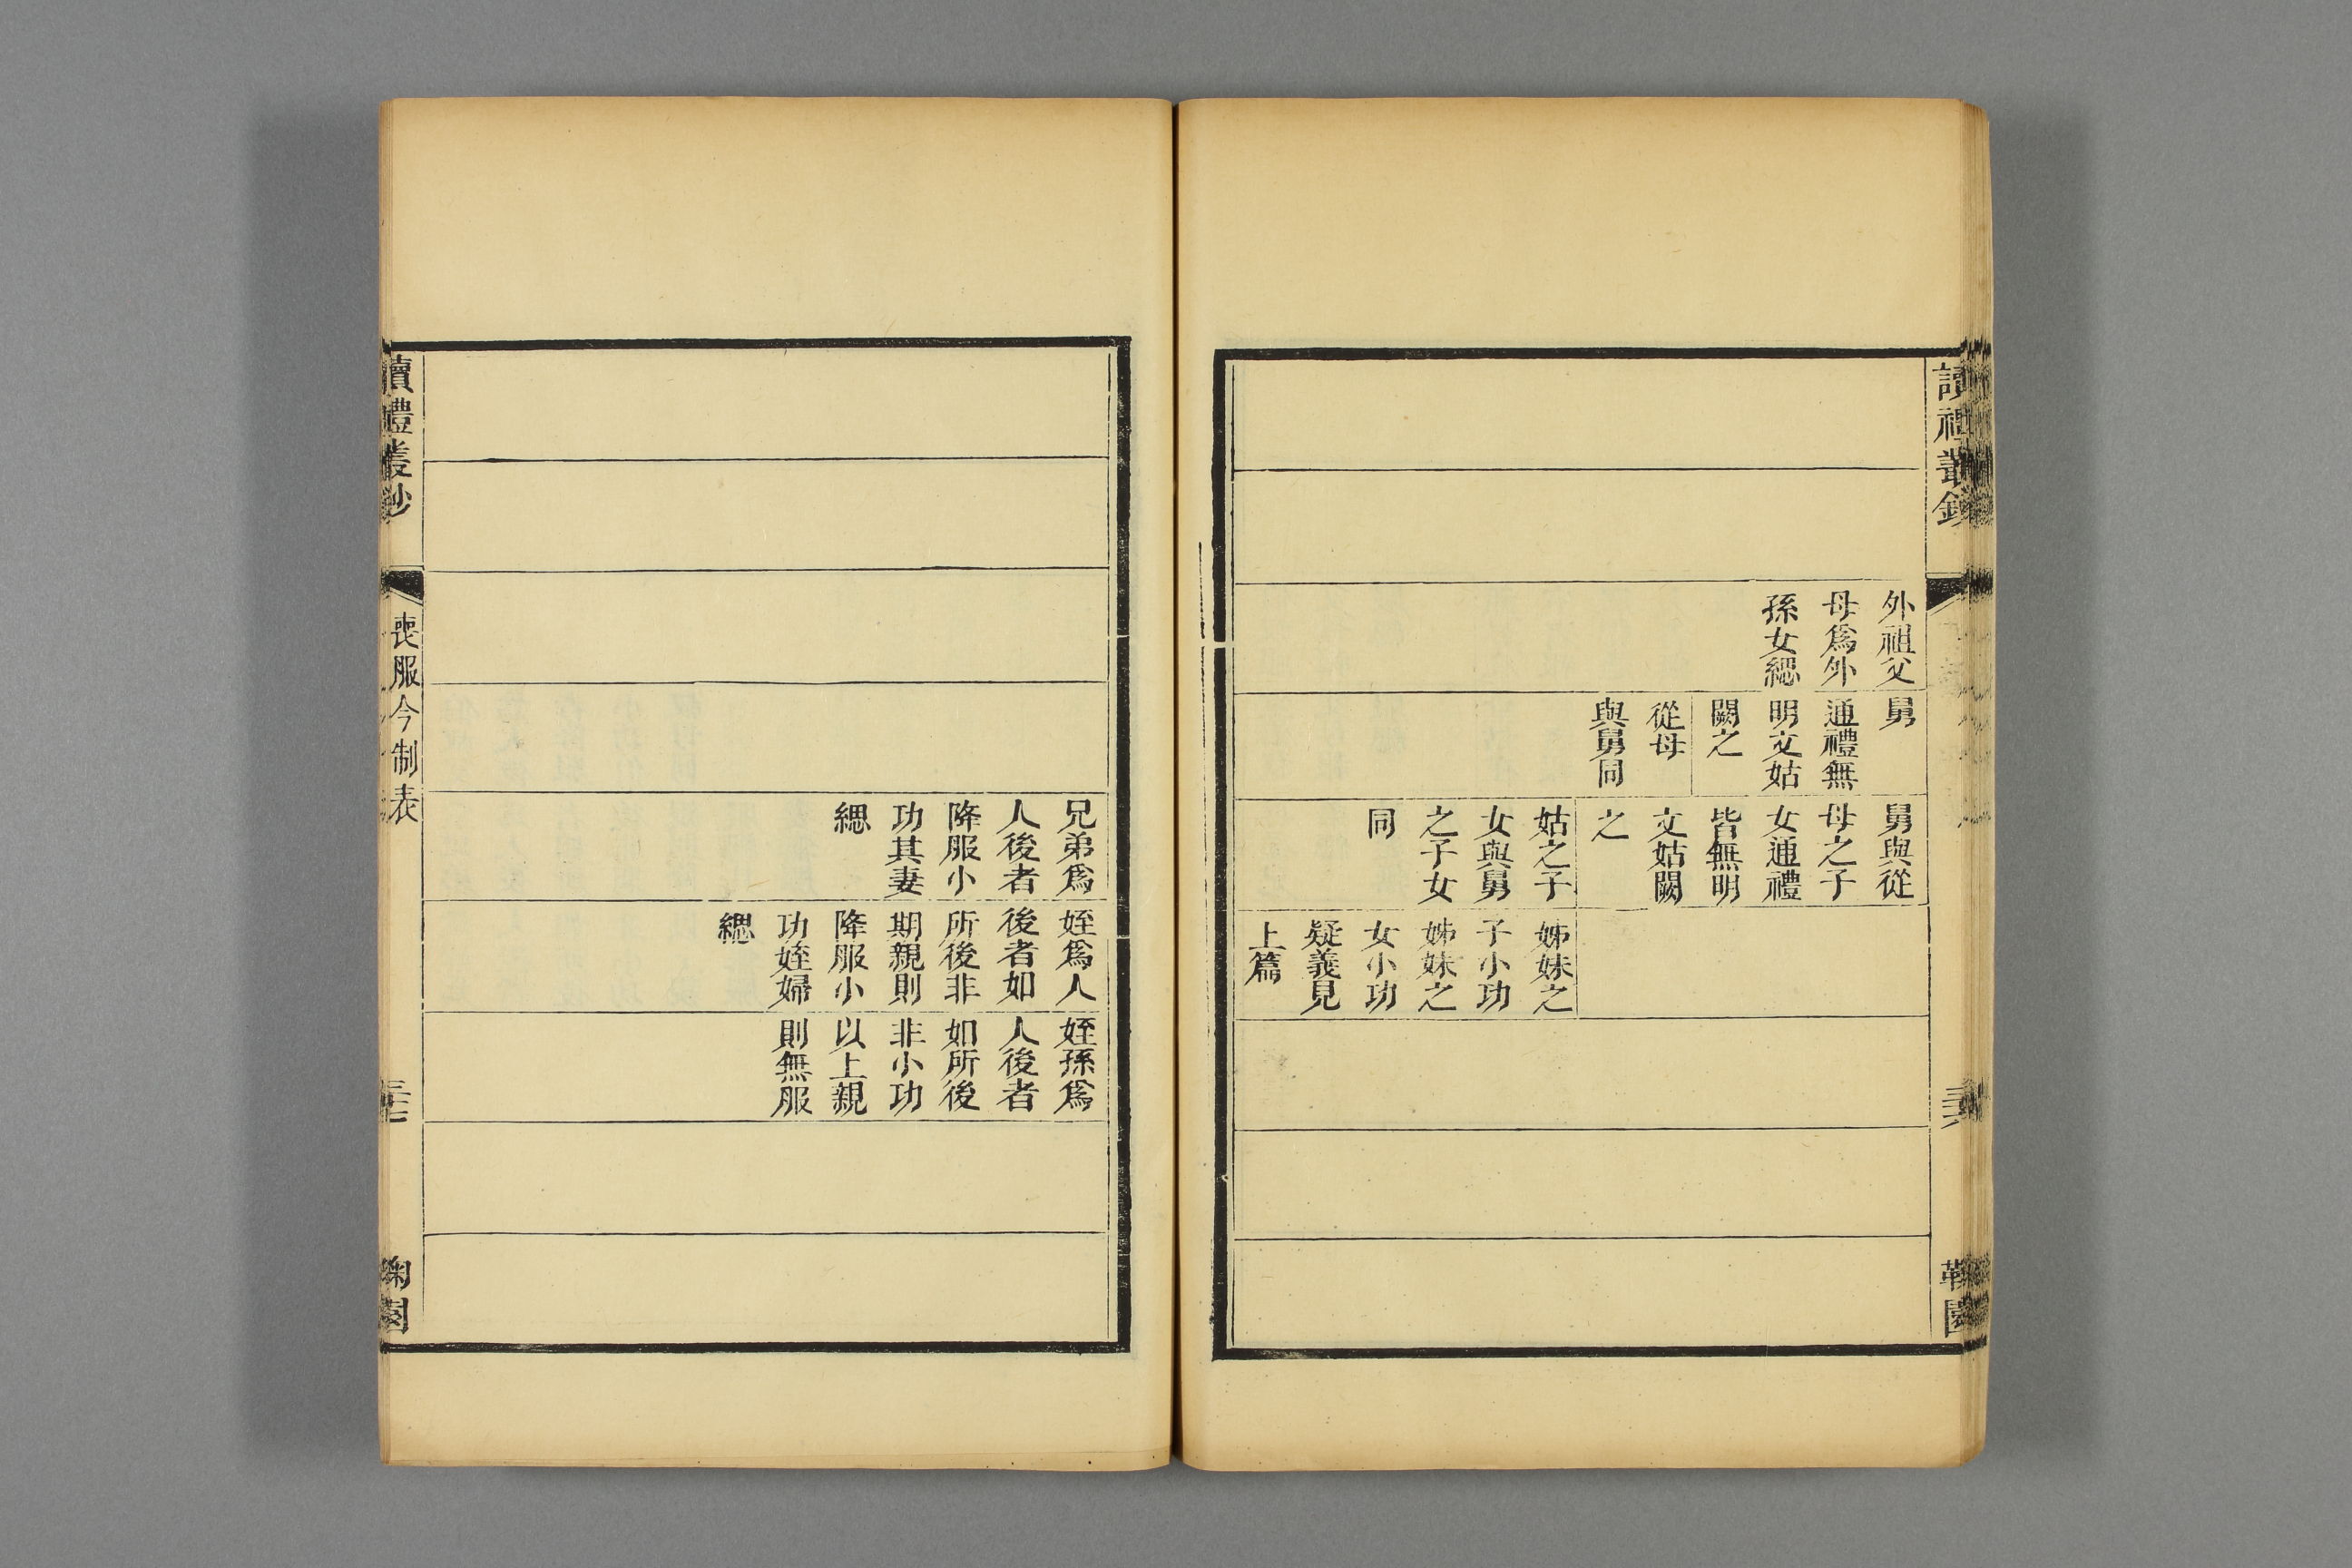 讀禮叢鈔
鞠園
外祖父
母爲外
孫女緦
舅
通禮無
明文姑
闕之
從母
與舅同
舅與從
母之子
女通禮
皆無明
文姑闕
之
姑之子
女與舅
之子女
同
姊妹之
子小功
姊妹之
女小功
疑義見
上篇
兄弟爲
人後者
降服小
功其妻
緦
姪爲人
後者如
所後非
期親則
降服小
功姪婦
緦
姪孫爲
人後者
如所後
非小功
以上親
則無服
讀禮叢鈔
喪服今制表
鞠園